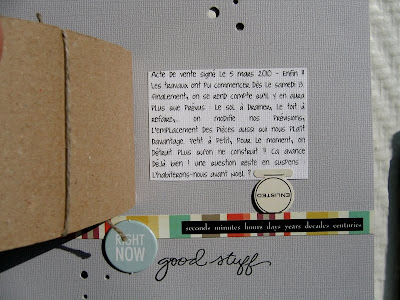 Acte de vente signé le 5 mars 2010 - Enfin !!
Les travaux ont pu commencer dès le samedi 13.
Finalement, on se rend compte qu'il y en aura
plus que prévus : le sol à drainer, le toit à
refaire,... on modifie nos prévisions,
l'emplacement des pièces aussi qui nous plaît
davantage. Petit à petit, pour le moment, on
détruit plus qu'on ne construit !! Ca avance
déjà bien ! une question reste en suspens :
l'habiterons-nous avant Noël ?
ENLISTED
seconds minutes hours days years decades centuries
RIGHT
NOW
good stuff